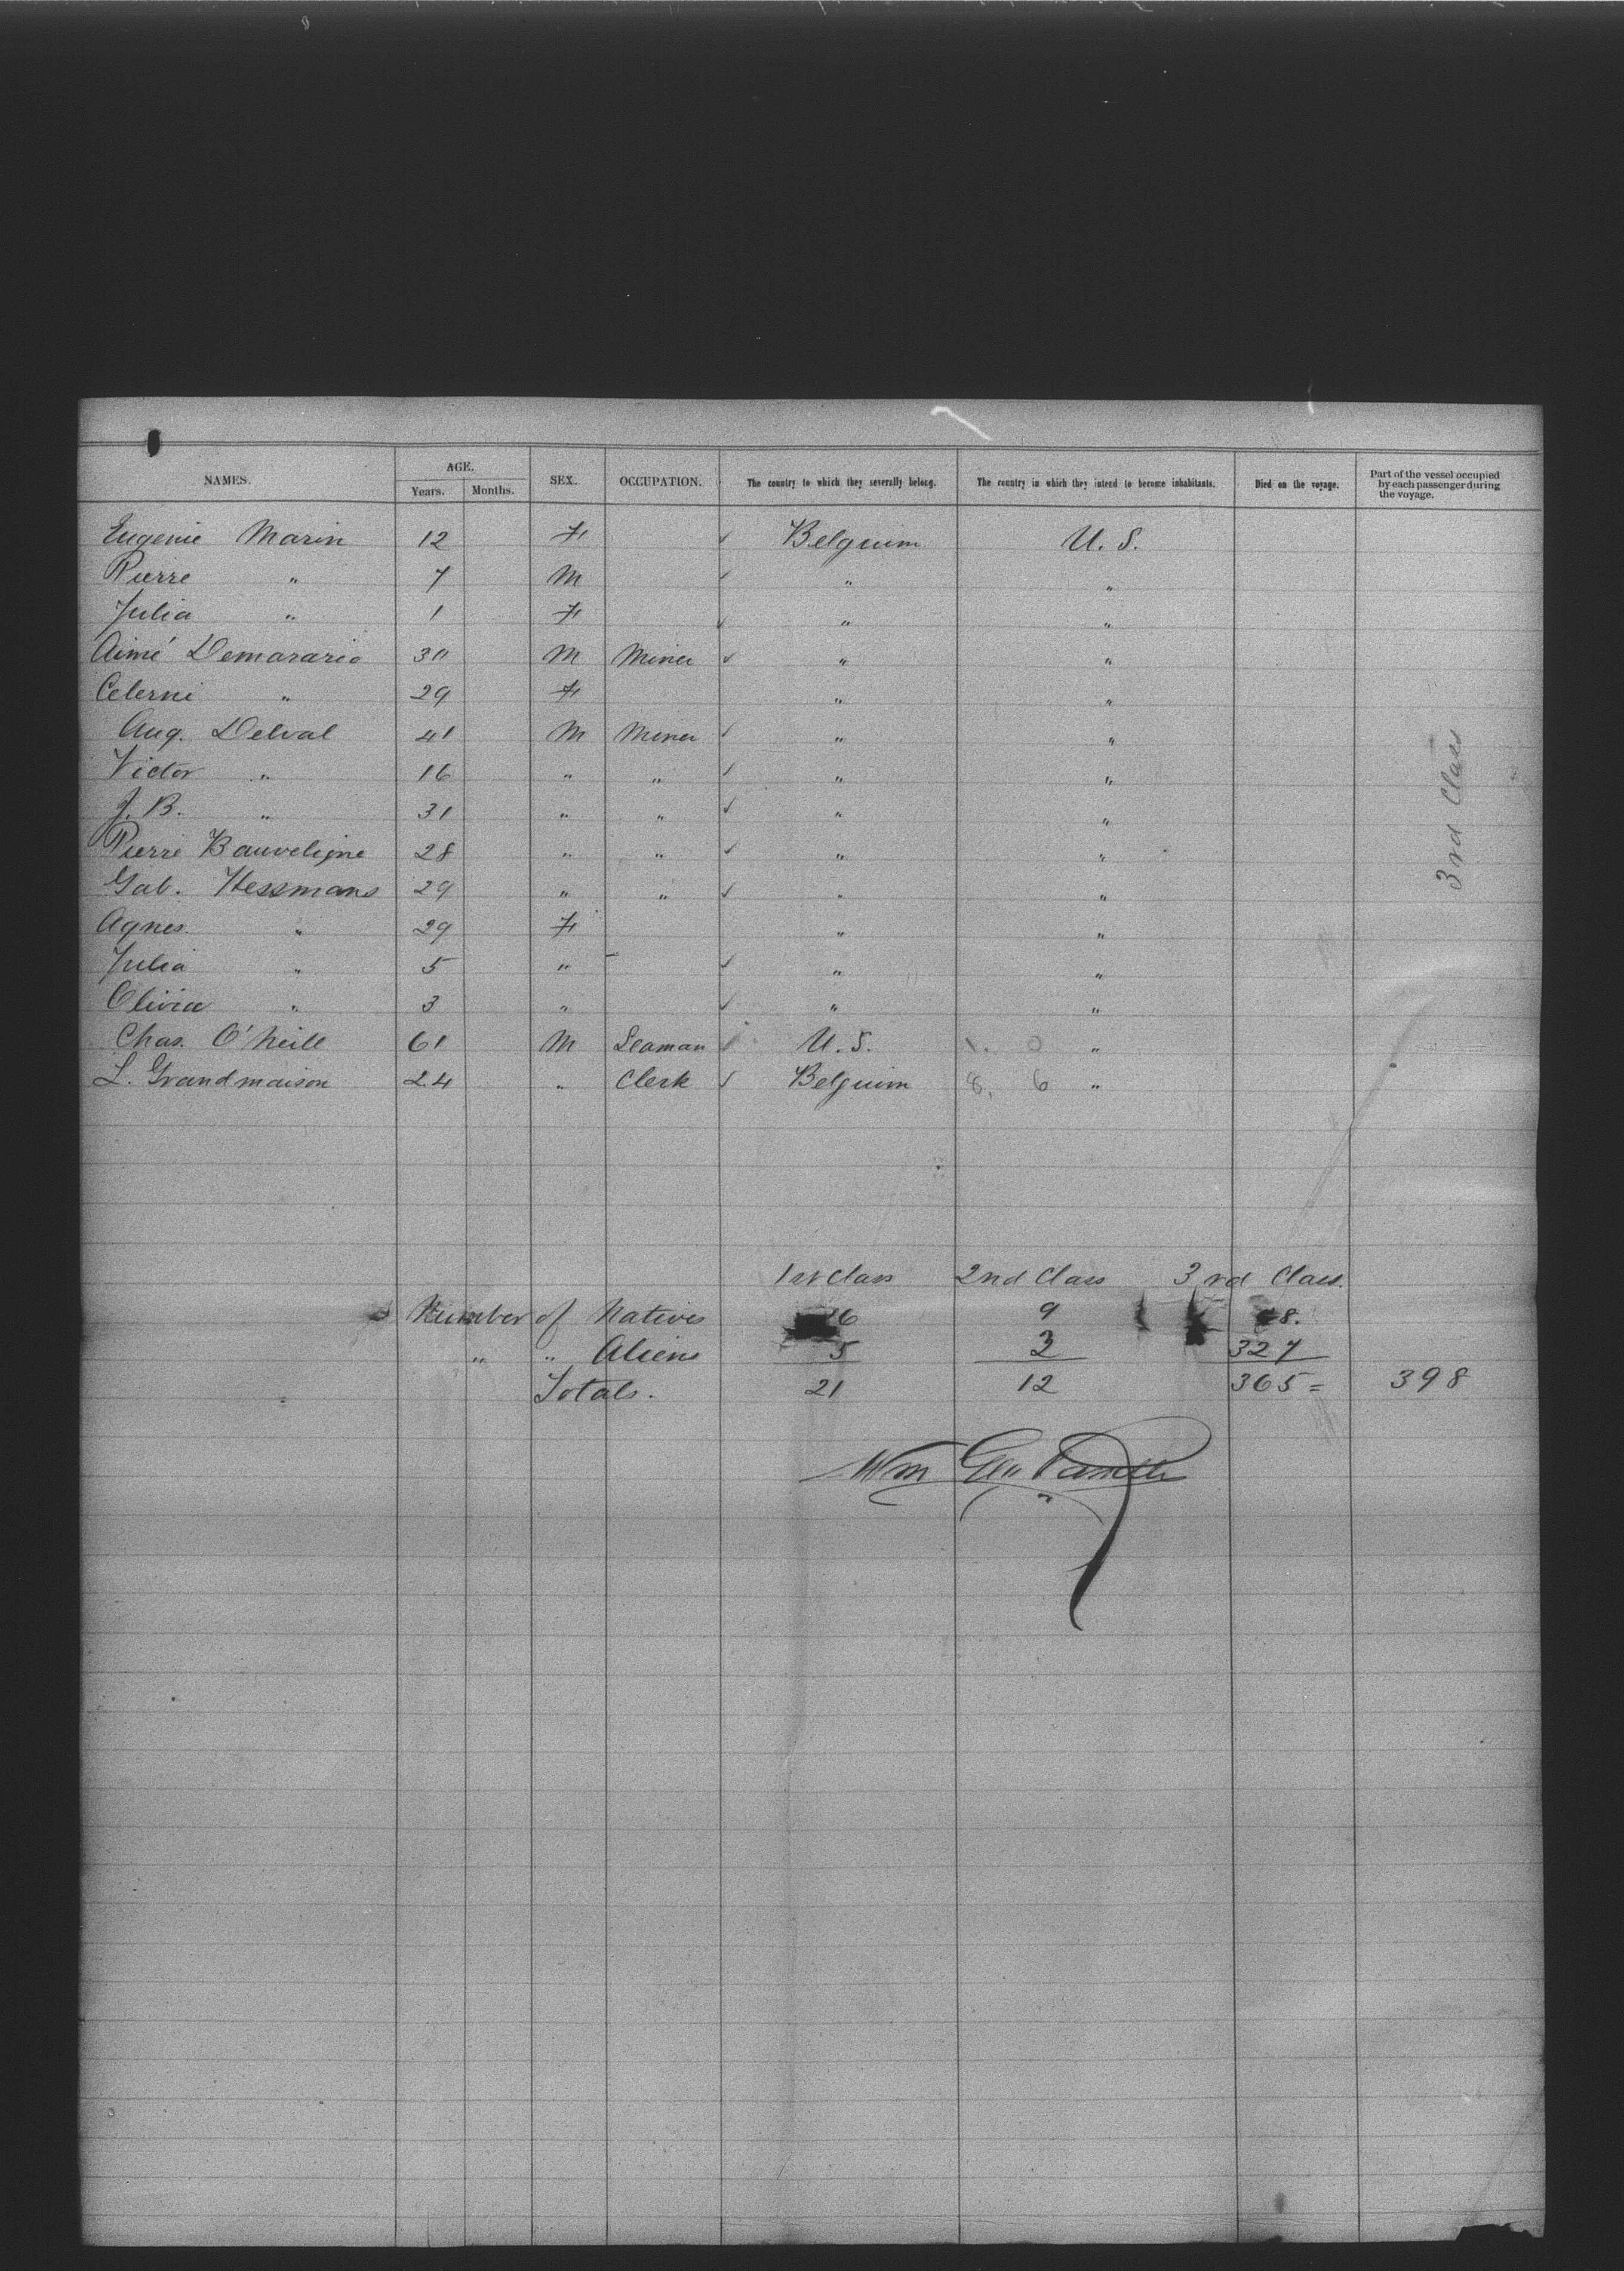 NAMES. AGE. SEX. OCCUPATION. The country to which they severally belong. The country in which they intend to become inhabitants. Died on the voyage. Part of the vessel occupied by each passenger during the voyage.
Years. Months.
Eugenie Marin 12 F Belguim U. S.
Pierre " 7 M " "
Julia " 1 F " "
Aimé Demarario 30 M Miner " "
Celerni " 29 F " "
Aug. Delval 41 M Miner " "
Victor " 16 " " " "
J. B. " 31 " " " "
Pierre Bauveligne 28 " " " "
Gab. Hessmans 29 " " " "
Agnes " 29 F " "
Julia " 5 " " "
Olivia " 3 " " "
Chas. O'Neill 61 M Seaman U. S. 1. 0 "
L. Grandmaison 24 " Clerk Belguim 8. 6 "
3rd Class
1st Class 2nd Class 3rd Class.
Number of Natives 16 9 8.
" " Aliens 5 3 327
Totals. 21 12 365 = 398
Wm Geo